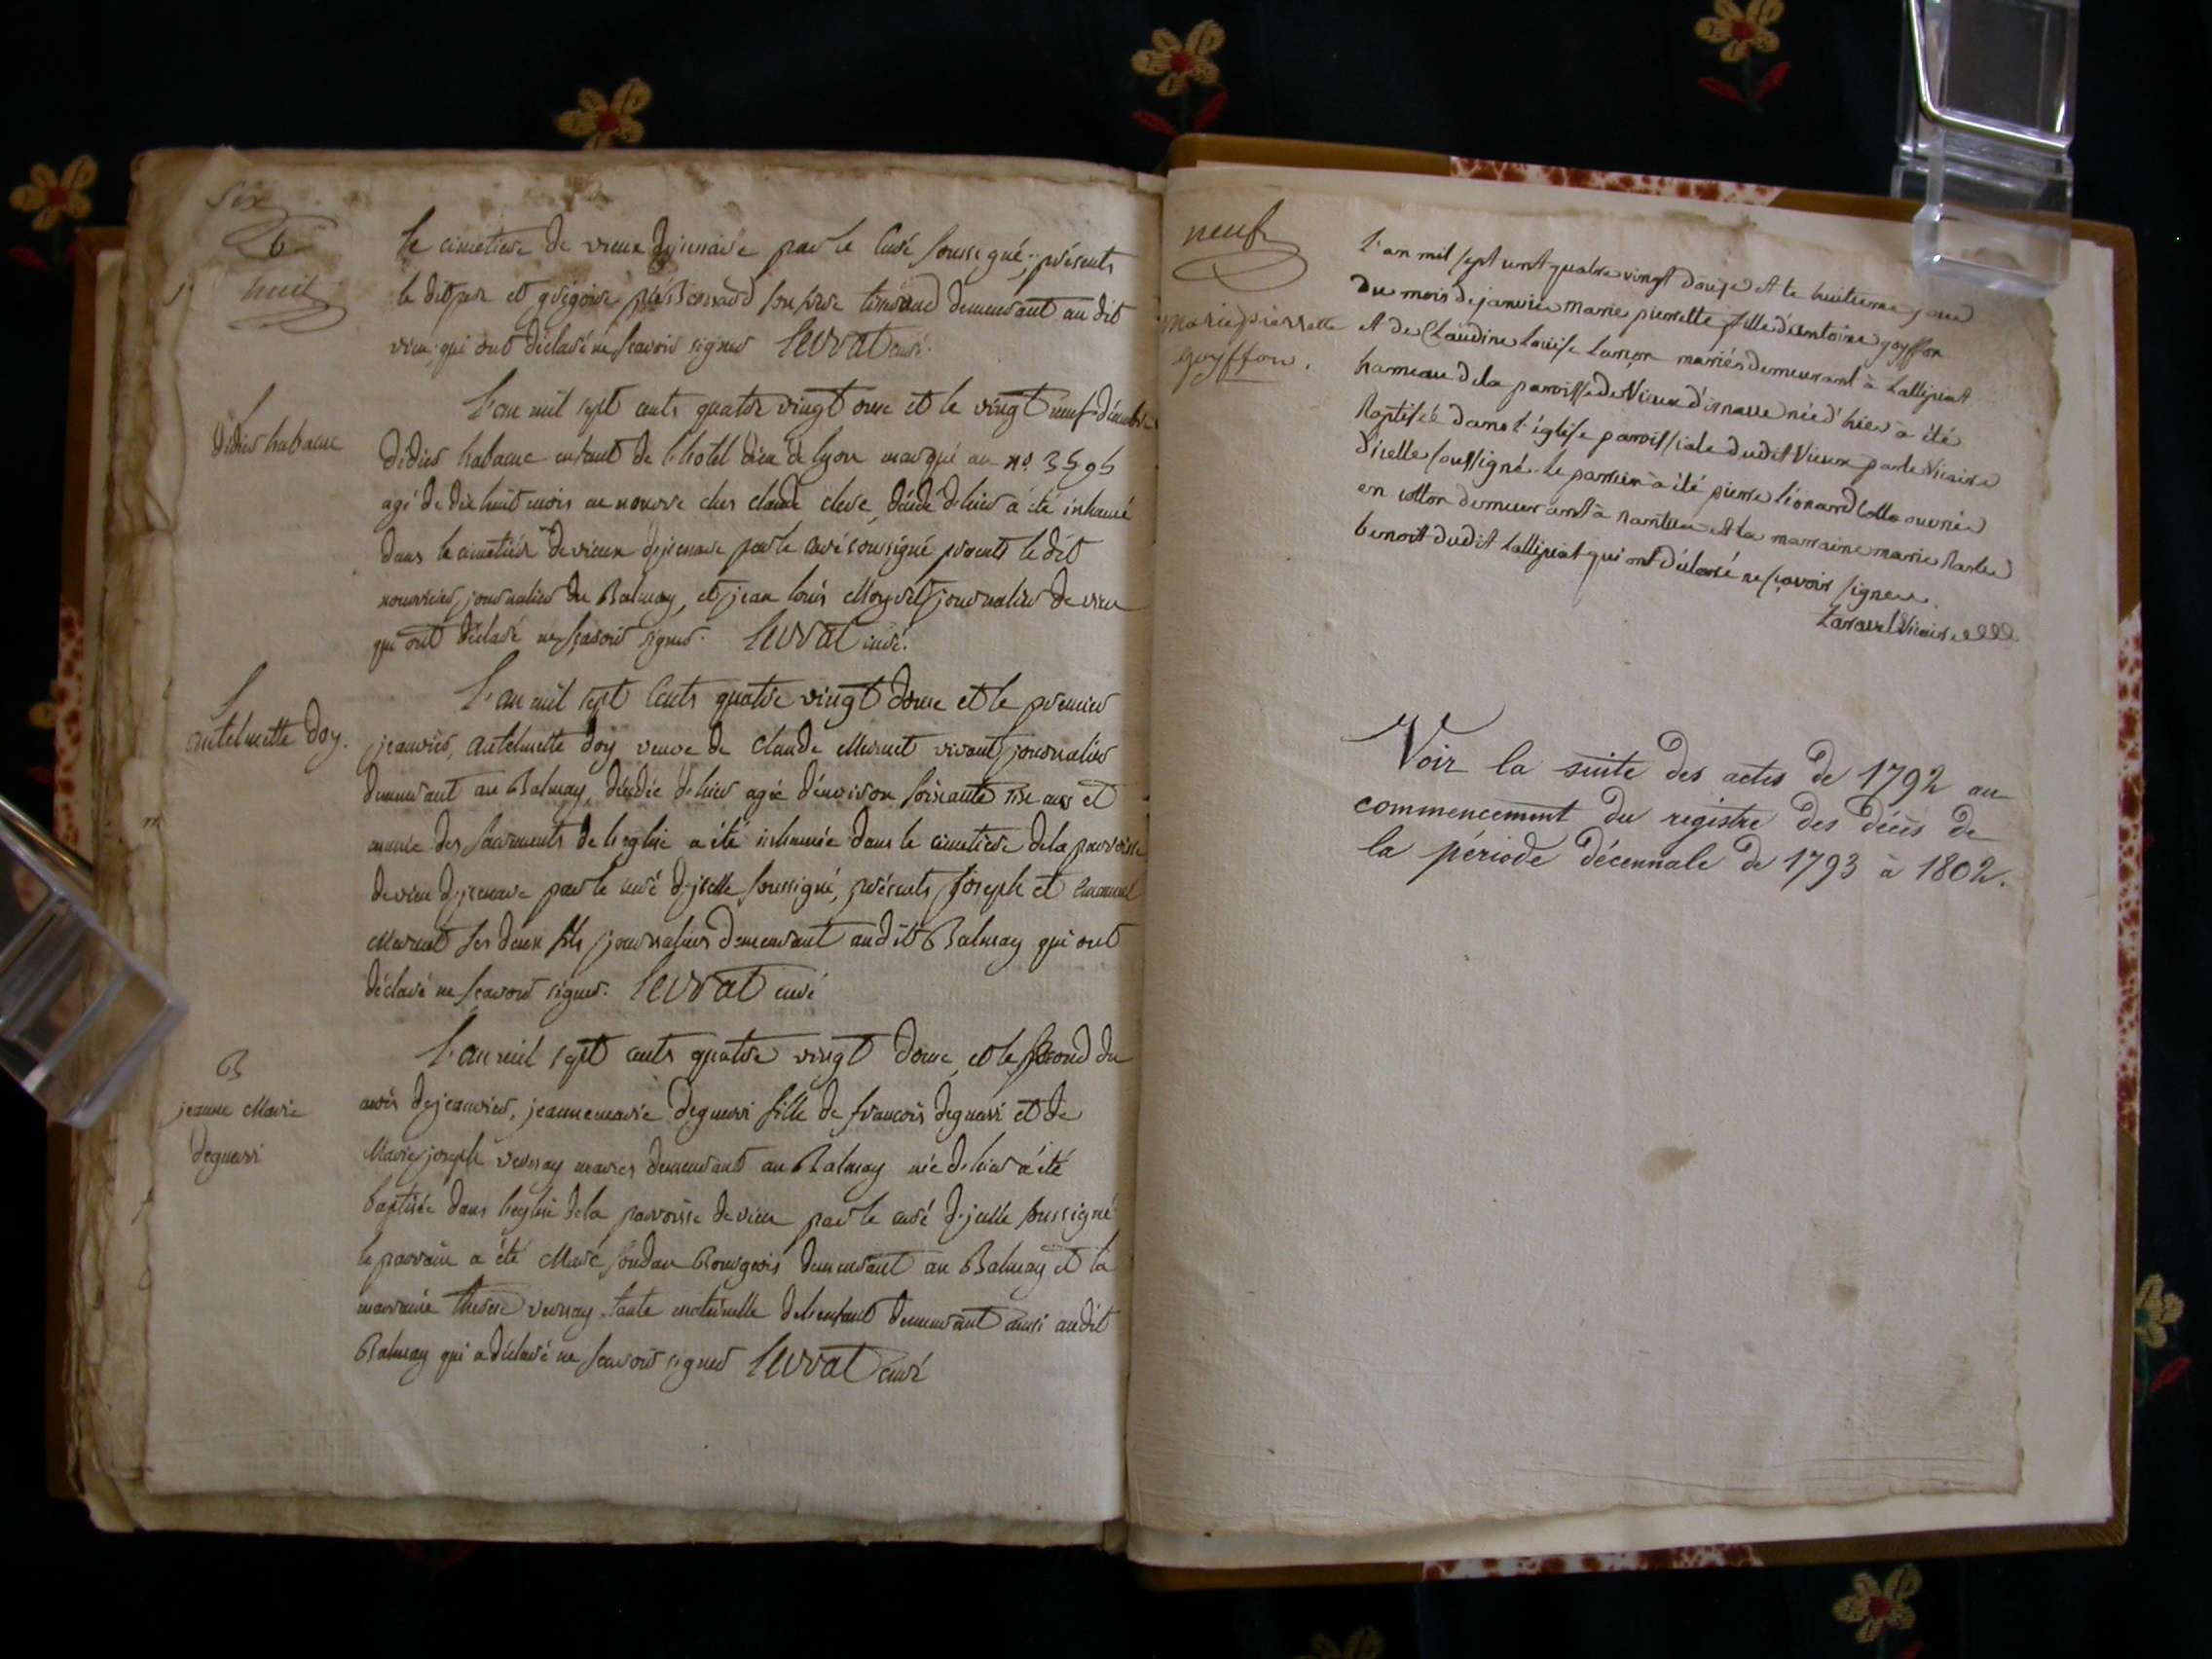 six
6
huit
le cimetiere de vieux dizenave par le curé soussigné, présents
le dit père et grégoire son frere demeurant au dit
vieu qui ont déclaré ne scavoir signer levrat curé.
didier habacuc
L'an mil sept cents quatre vingt onze et le vingt neuf décembre
didier habacuc enfant de l'hotel dieu de lyon marqué au no. 3595
agé de dix huit mois en nourice ches claude décédé d'hier a été inhumé
dans le cimetière de vieux dizenave par le curé soussigné présents le dit
nourricier, journalier du Balmay, et jean louis journalier de vieu
qui ont déclaré ne scavoir signer. levrat curé.
antelmette doy.
L'an mil sept cents quatre vingt douze et le premier
jeanvier, antelmette doy veuve de claude vivant journalier
demeurant au Balmay, décédée d'hier agée d'environ soixante ans et
munie des sacrements de l'eglise a été inhumée dans le cimetiere de la parroisse
de vieu par le curé d'jcelle soussigné, présents joseph et emanuel
ses deux fils journaliers demeurant audit Balmay qui ont
déclaré ne scavoir signer. levrat curé
B
jeanne Marie
deguerri
L'an mil sept cents quatre vingt douze, et le second du
mois de jeanvier, jeanne marie deguerri fille de francois deguerri et de
Marie joseph vernay mariés demeurant au Balmay née d'hier a été
baptisée dans l'eglise de la parroisse de vieu par le curé d'jcelle soussigné
le parrain a été Marc Bourgeois demeurant au Balmay et la
marraine therese vernay tante maternelle de l'enfant demeurant aussi audit
Balmay qui a déclaré ne scavoir signer levrat curé
neuf
marie pierrette
goyffon.
L'an mil sept cent quatre vingt douze et le huitieme jour
du mois de janvier marie pierrette fille d'antoine goyffon
et de Claudine Louise mariés demeurant à Lalleyriat
hameau de la paroisse de Vieux d'isnave née d'hier a été
baptisée dans l'église paroissiale dudit Vieux par le Vicaire
d'icelle soussigné. le parrein a été pierre léonard ouvrier
en cotton demeurant à nantua et la marraine marie
benoit dudit Lalleyriat qui ont déclaré ne sçavoir signer.
Laravel Vicaire
Voir la suite des actes de 1792 au
commencement du registre des décès de
la période décennale de 1793 à 1802.